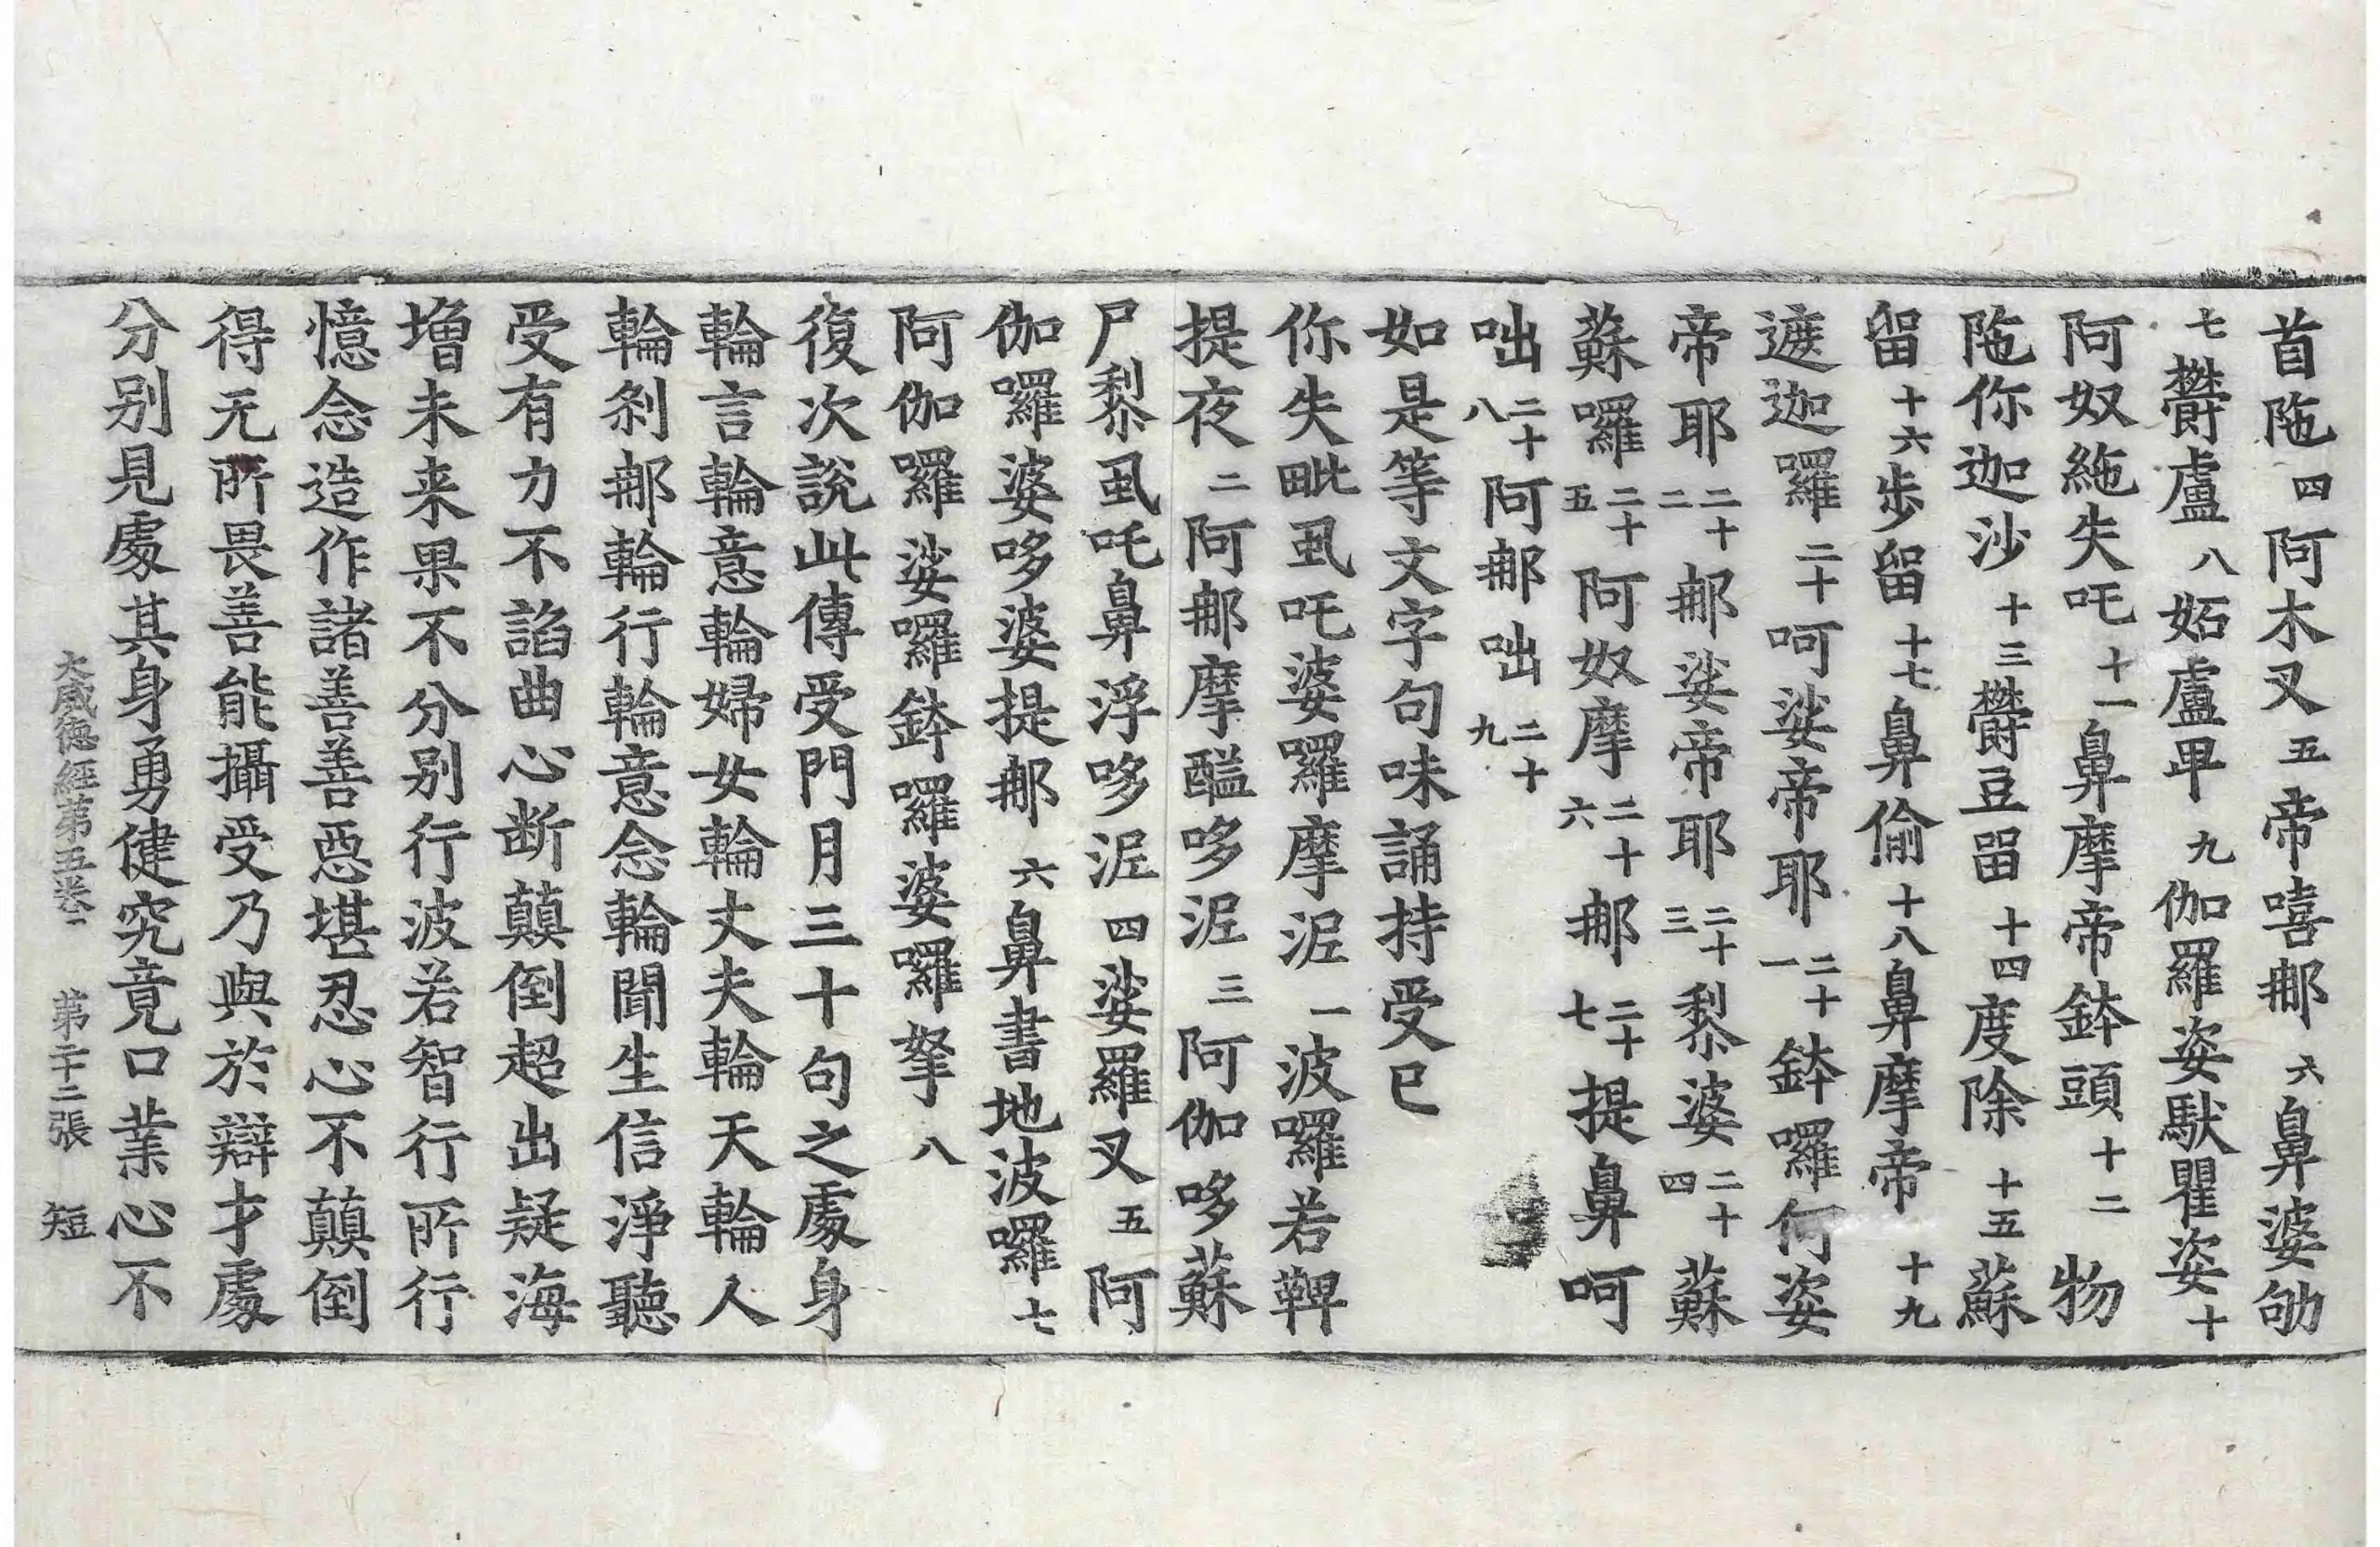 首陁四阿木叉五帝嘻郍六鼻婆劬
七欝盧八妬盧早九伽羅姿䭾瞿姿十
阿奴絁失吒十一鼻摩帝鉢頭十二物
陁你迦沙十三欝豆留十四度除十五蘇
留十六步留十七鼻偷十八鼻摩帝十九
遮迦囉二十呵娑帝耶二十一鉢囉何姿
帝耶二十二郍娑帝耶二十三黎婆二十四蘇
蘇囉二十五阿奴摩二十六郍二十七提鼻呵
咄二十八阿郍咄二十九
如是等文字句味誦持受已
你失毗虱吒婆羅摩泥一波囉若鞞
提夜二阿郍摩醯哆泥三阿伽哆蘇
尸黎虱吒鼻浮哆泥四娑羅叉五阿
伽囉婆哆婆提郍六鼻書地波囉七
阿伽囉娑囉鉢囉婆囉拏八
復次說此傳受門月三十句之處身
輪言輪意輪婦女輪丈夫輪天輪人
輪剎郍輪行輪意念輪聞生信淨聽
受有力不諂曲心断顛倒超出疑海
增未来果不分别行波若智行所行
憶念造作諸善善惡堪忍心不顛倒
得无所畏善能攝受乃與於辯才處
分别見處其身勇健究竟口業心不
大威德經第五卷 第二十二張 短